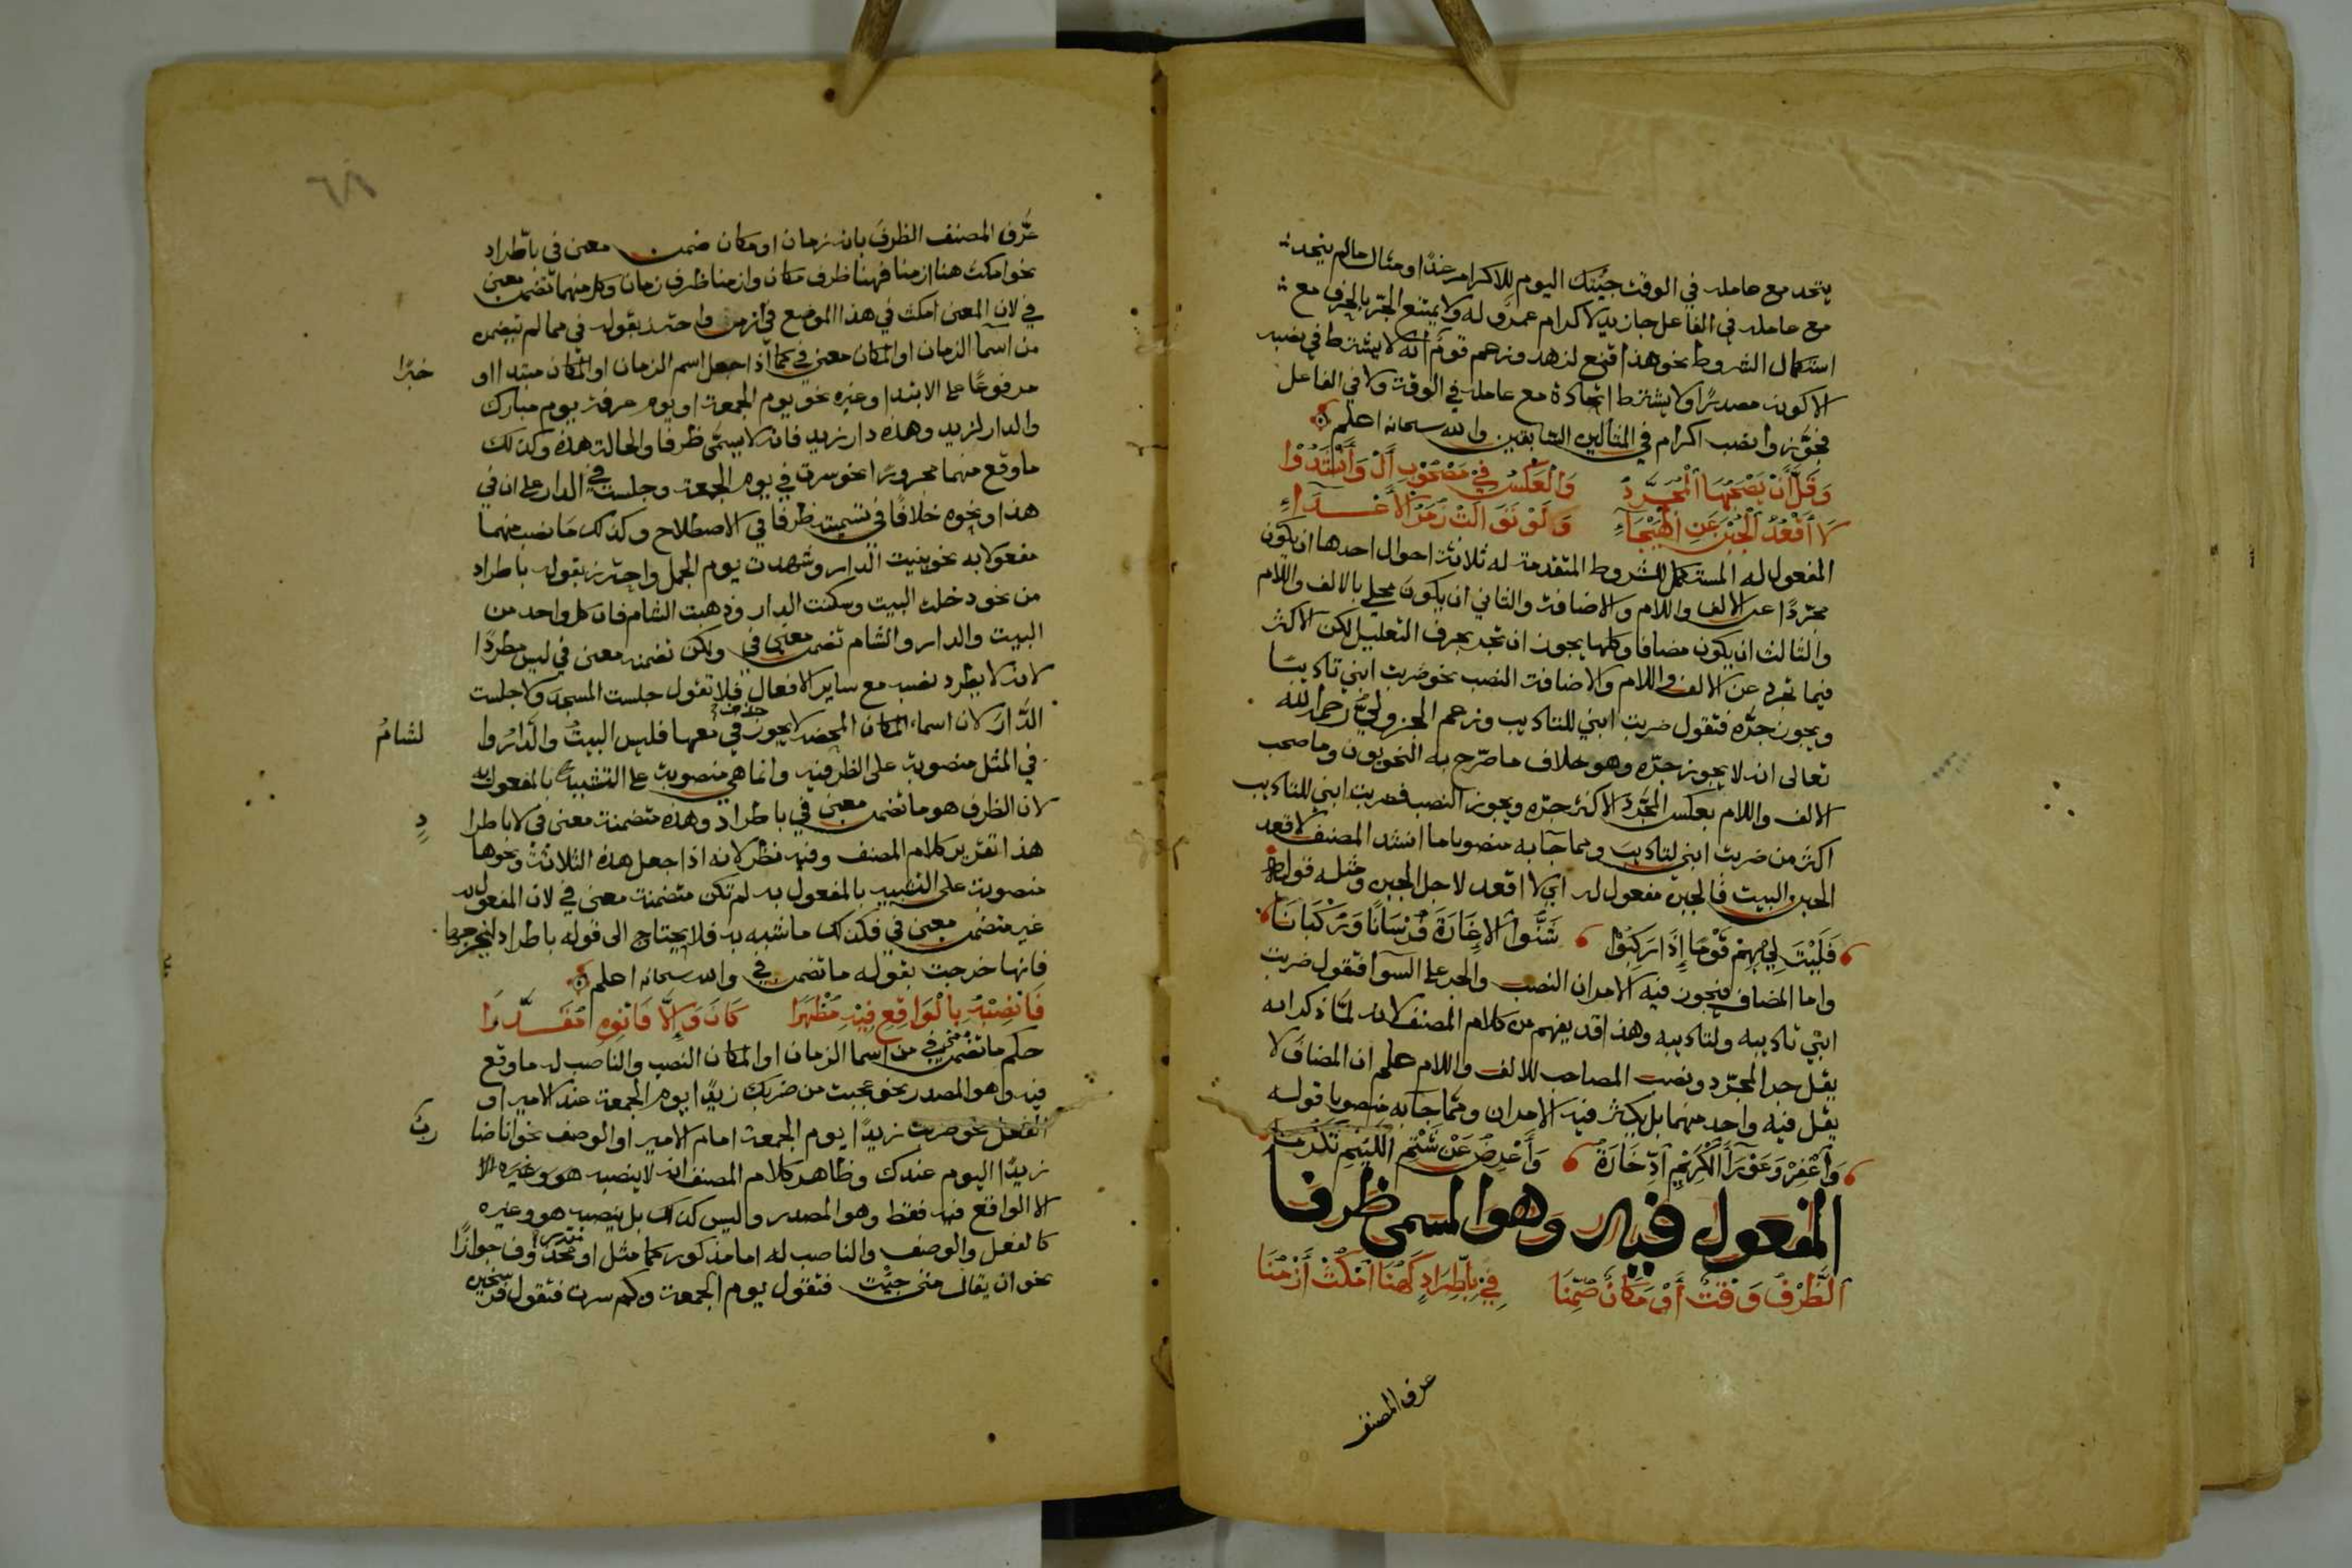 يتحد مع عامله في الوقت جيتك اليوم للاكرام غدا ومثال مالم يتحد
مع عامله في الفاعل جا زيد لاكرام عمرو له ولا يمتنع الجر بالحرف مع
استكمال الشروط نحو هذا قنع لزهد وزعم قوم انه لا يشترط في نصبه
الا كونه مصدرًا ولا يشترط اتحاده مع عامله في الوقت ولا في الفاعل
فجوّزوا نصب اكرام في المثالين السابقين والله سبحانه اعلم
وَقَلَّ أَنْ يَصْحَبَهَا الْمُجَرَّدُ وَالْعَكْسُ فِيْ مَصْحُوْبِ أَلْ وَأَنْشَدُوْا
لَا أَقْعُدُ الْجُبْنَ عَنِ الْهَيْجَآءِ وَلَوْ تَوَالَتْ زُمَرُ الْأَعْدَاءِ
المفعول له المستكمل للشروط المتقدمة له ثلاثة احوال احدها ان يكون
مجرّدًا عن الالف واللام والاضافة والثاني ان يكون محلى بالالف واللام
والثالث ان يكون مضافا وكلها يجوز ان تجر بحرف التعليل لكن الاكثر
فيما تجرد عن الالف واللام والاضافة النصب نحو ضربت ابني تاديبًا
ويجوز جرّه فتقول ضربت ابني للتاديب وزعم الجزولي رحمه الله
تعالى انه لا يجوز جرّه وهو خلاف ما صرّح به النحويون وما صحب
الالف واللام بعكس المجرّد الاكثر جرّه ويجوز النصب فضربت ابني للتاديب
اكثر من ضربت ابني لتاديب ومما جآ به منصوبا ما انشد المصنف لا اقعد
الجبن البيت فالجبن مفعول له اي لا اقعد لاجل الجبن ومثله قوله
فَلَيْتَ لِيْ بِهِمْ قَوْمًا إِذَا رَكِبُوْا شَنُّوا الْإِغَارَةَ فُرْسَانًا وَرُكْبَانَا
واما المضاف فيجوز فيه الامران النصب والجر على السوآ فتقول ضربت
ابني تاديبه ولتاديبه وهذا قد يفهم من كلام المصنف لانه لمّا ذكر انه
يقل جر المجرّد ونصب المصاحب للالف واللام علم ان المضاف لا
يقل فيه واحد منهما بل يكثر فيه الامران ومما جآ به منصوبا قوله
وَأَغْفِرُ عَوْرَآءَ الْكَرِيْمِ ادِّخَارَهُ وَأُعْرِضُ عَنْ شَتْمِ اللَّئِيْمِ تَكَرُّمَا
المفعول فيه وهو المسمى ظرفا
اَلظَّرْفُ وَقْتٌ أَوْ مَكَانٌ ضُمِّنَا فِيْ بِاطِّرَادٍ كَهُنَا امْكُثْ أَزْمُنَا
عرف المصنف
٦٨
عرّف المصنف الظرف بانه زمان او مكان ضمن معنى في باطّراد
نحو امكث هنا ازمنا فهنا ظرف مكان وازمنا ظرف زمان وكل منهما تضمن معنى
في لان المعنى امكث في هذا الموضع في ازمن واحترز بقوله في مما لم تيضمن
من اسما الزمان او المكان معنى في كما اذا جعل اسم الزمان او المكان مبتدا او خبرًا
مرفوعًا على الابتدا وغيره نحو يوم الجمعة او يوم عرفة يوم مبارك
والدار لزيد وهذه دار زيد فانه لا يسمّى ظرفا والحالة هذه وكذلك
ما وقع منهما مجرورًا نحو سرت في يوم الجمعة وجلست في الدار على ان في
هذا ونحوه خلافًا في تسميته ظرفا في الاصطلاح وكذلك ما نصب منهما
مفعولا به نحو بنيت الدار وشهدت يوم الجمل واحترز بقوله باطراد
من نحو دخلت البيت وسكنت الدار وذهبت الشام فان كل واحد من
البيت والدار والشام تضمن معنى في ولكن تضمنه معنى في ليس مطردًا
لانه لا يطرد نصبه مع ساير الافعال فلا تقول جلست المسجد ولا جلست
الدّار لان اسماء المكان المختصة لا يجوز حذف في معها فليس البيتُ والدارُ والشامُ
في المثل منصوبة على الظرفيه وانما هي منصوبة على التشبيه بالمفعول به
لان الظرف هو ما تضمن معنى في باطراد وهذه متضمنة معنى في لا باطراد
هذا تقرير كلام المصنف وفيه نظر لانه اذا جعل هذه الثلاثة ونحوها
منصوبة على التشبيه بالمفعول به لم تكن متضمنة معنى في لان المفعول به
غير متضمن معنى في فكذلك ما شبه به فلا يحتاج الى قوله باطراد ليخرجها
فانها خرجت بقوله ما تضمن في والله سبحانه اعلم
فَانْصِبْهُ بِالْوَاقِعِ فِيْهِ مُظْهَرًا كَانَ وَإِلَّا فَانْوِهِ مُقَدَّرَا
حكم ما تضمن معنى في من اسما الزمان او المكان النصب والناصب له ما وقع
فيه وهو المصدر نحو عجبت من ضربك زيدًا يوم الجمعة عند الامير او
الفعل نحو ضربت زيدًا يوم الجمعة امام الامير او الوصف نحو انا ضارب
زيدًا اليوم عندك وظاهر كلام المصنف انه لا ينصبه هو وغيره الا
الا الواقع فيه فقط وهو المصدر وليس كذلك بل ينصبه هو وغيره
كالفعل والوصف والناصب له اما مذكور كما مثل او محذوف جوازًا
نحو ان يقال متى جيْت فتقول يوم الجمعة وكم سرت فتقول فرسخين